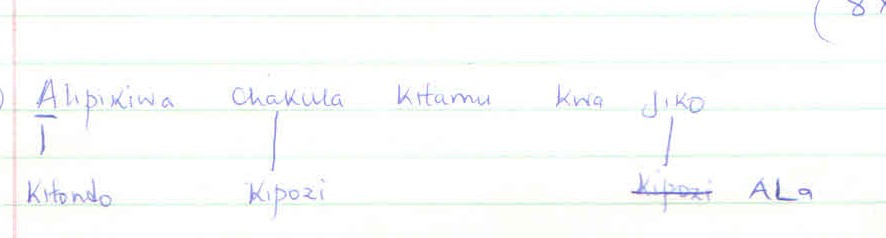 ( 8x
) Alipikiwa Chakula Kitamu kwa Jiko
Kitondo Kipozi Kipozi ALa